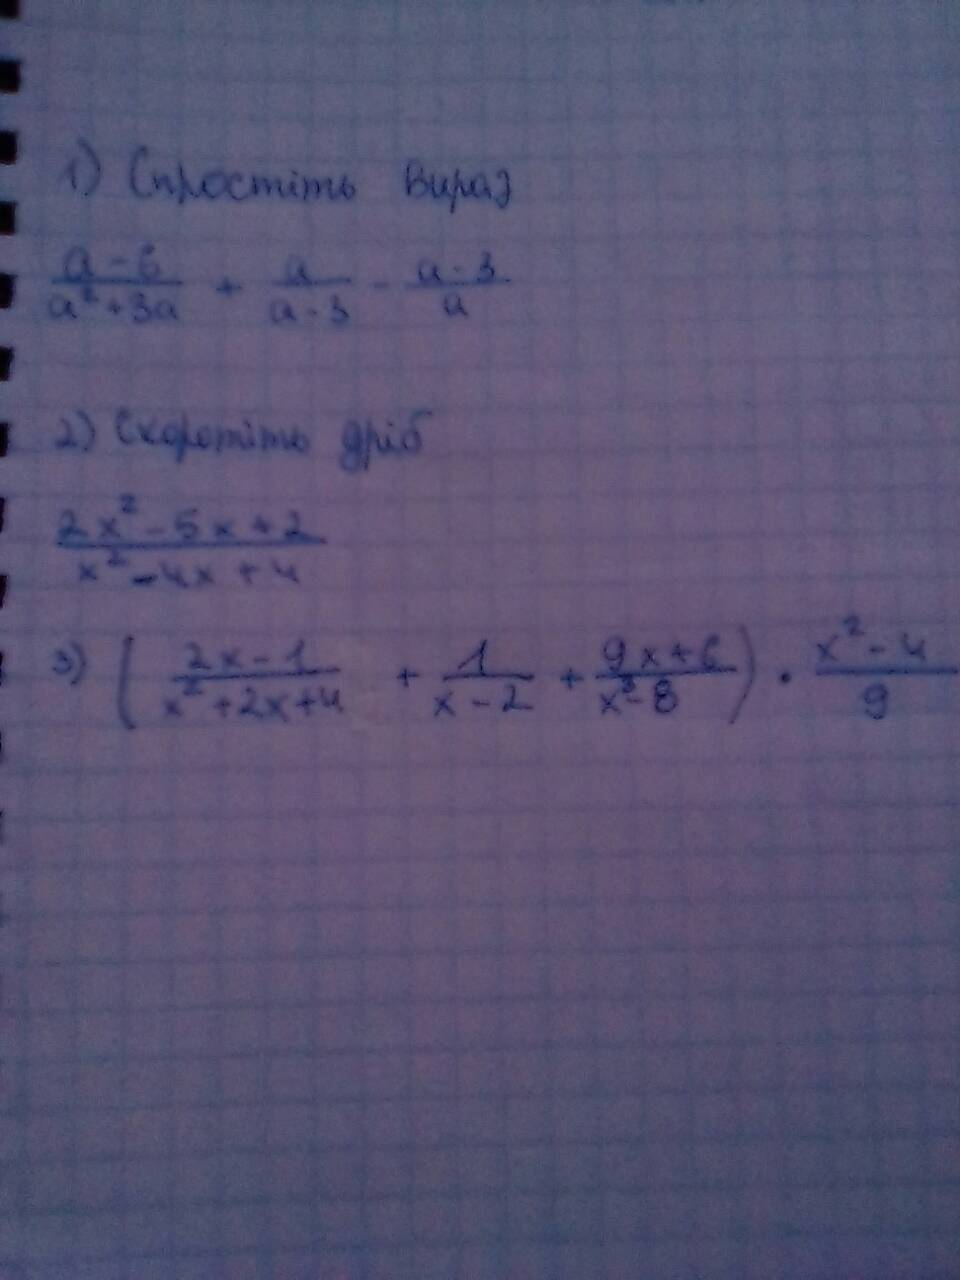 1) Спростіть вираз
(a - 6)/(a² + 3a) + a/(a - 3) - (a - 3)/a
2) Скоротіть дріб
(2x² - 5x + 2)/(x² - 4x + 4)
3) ((2x - 1)/(x² + 2x + 4) + 1/(x - 2) + (9x + 6)/(x³ - 8)) · (x² - 4)/9